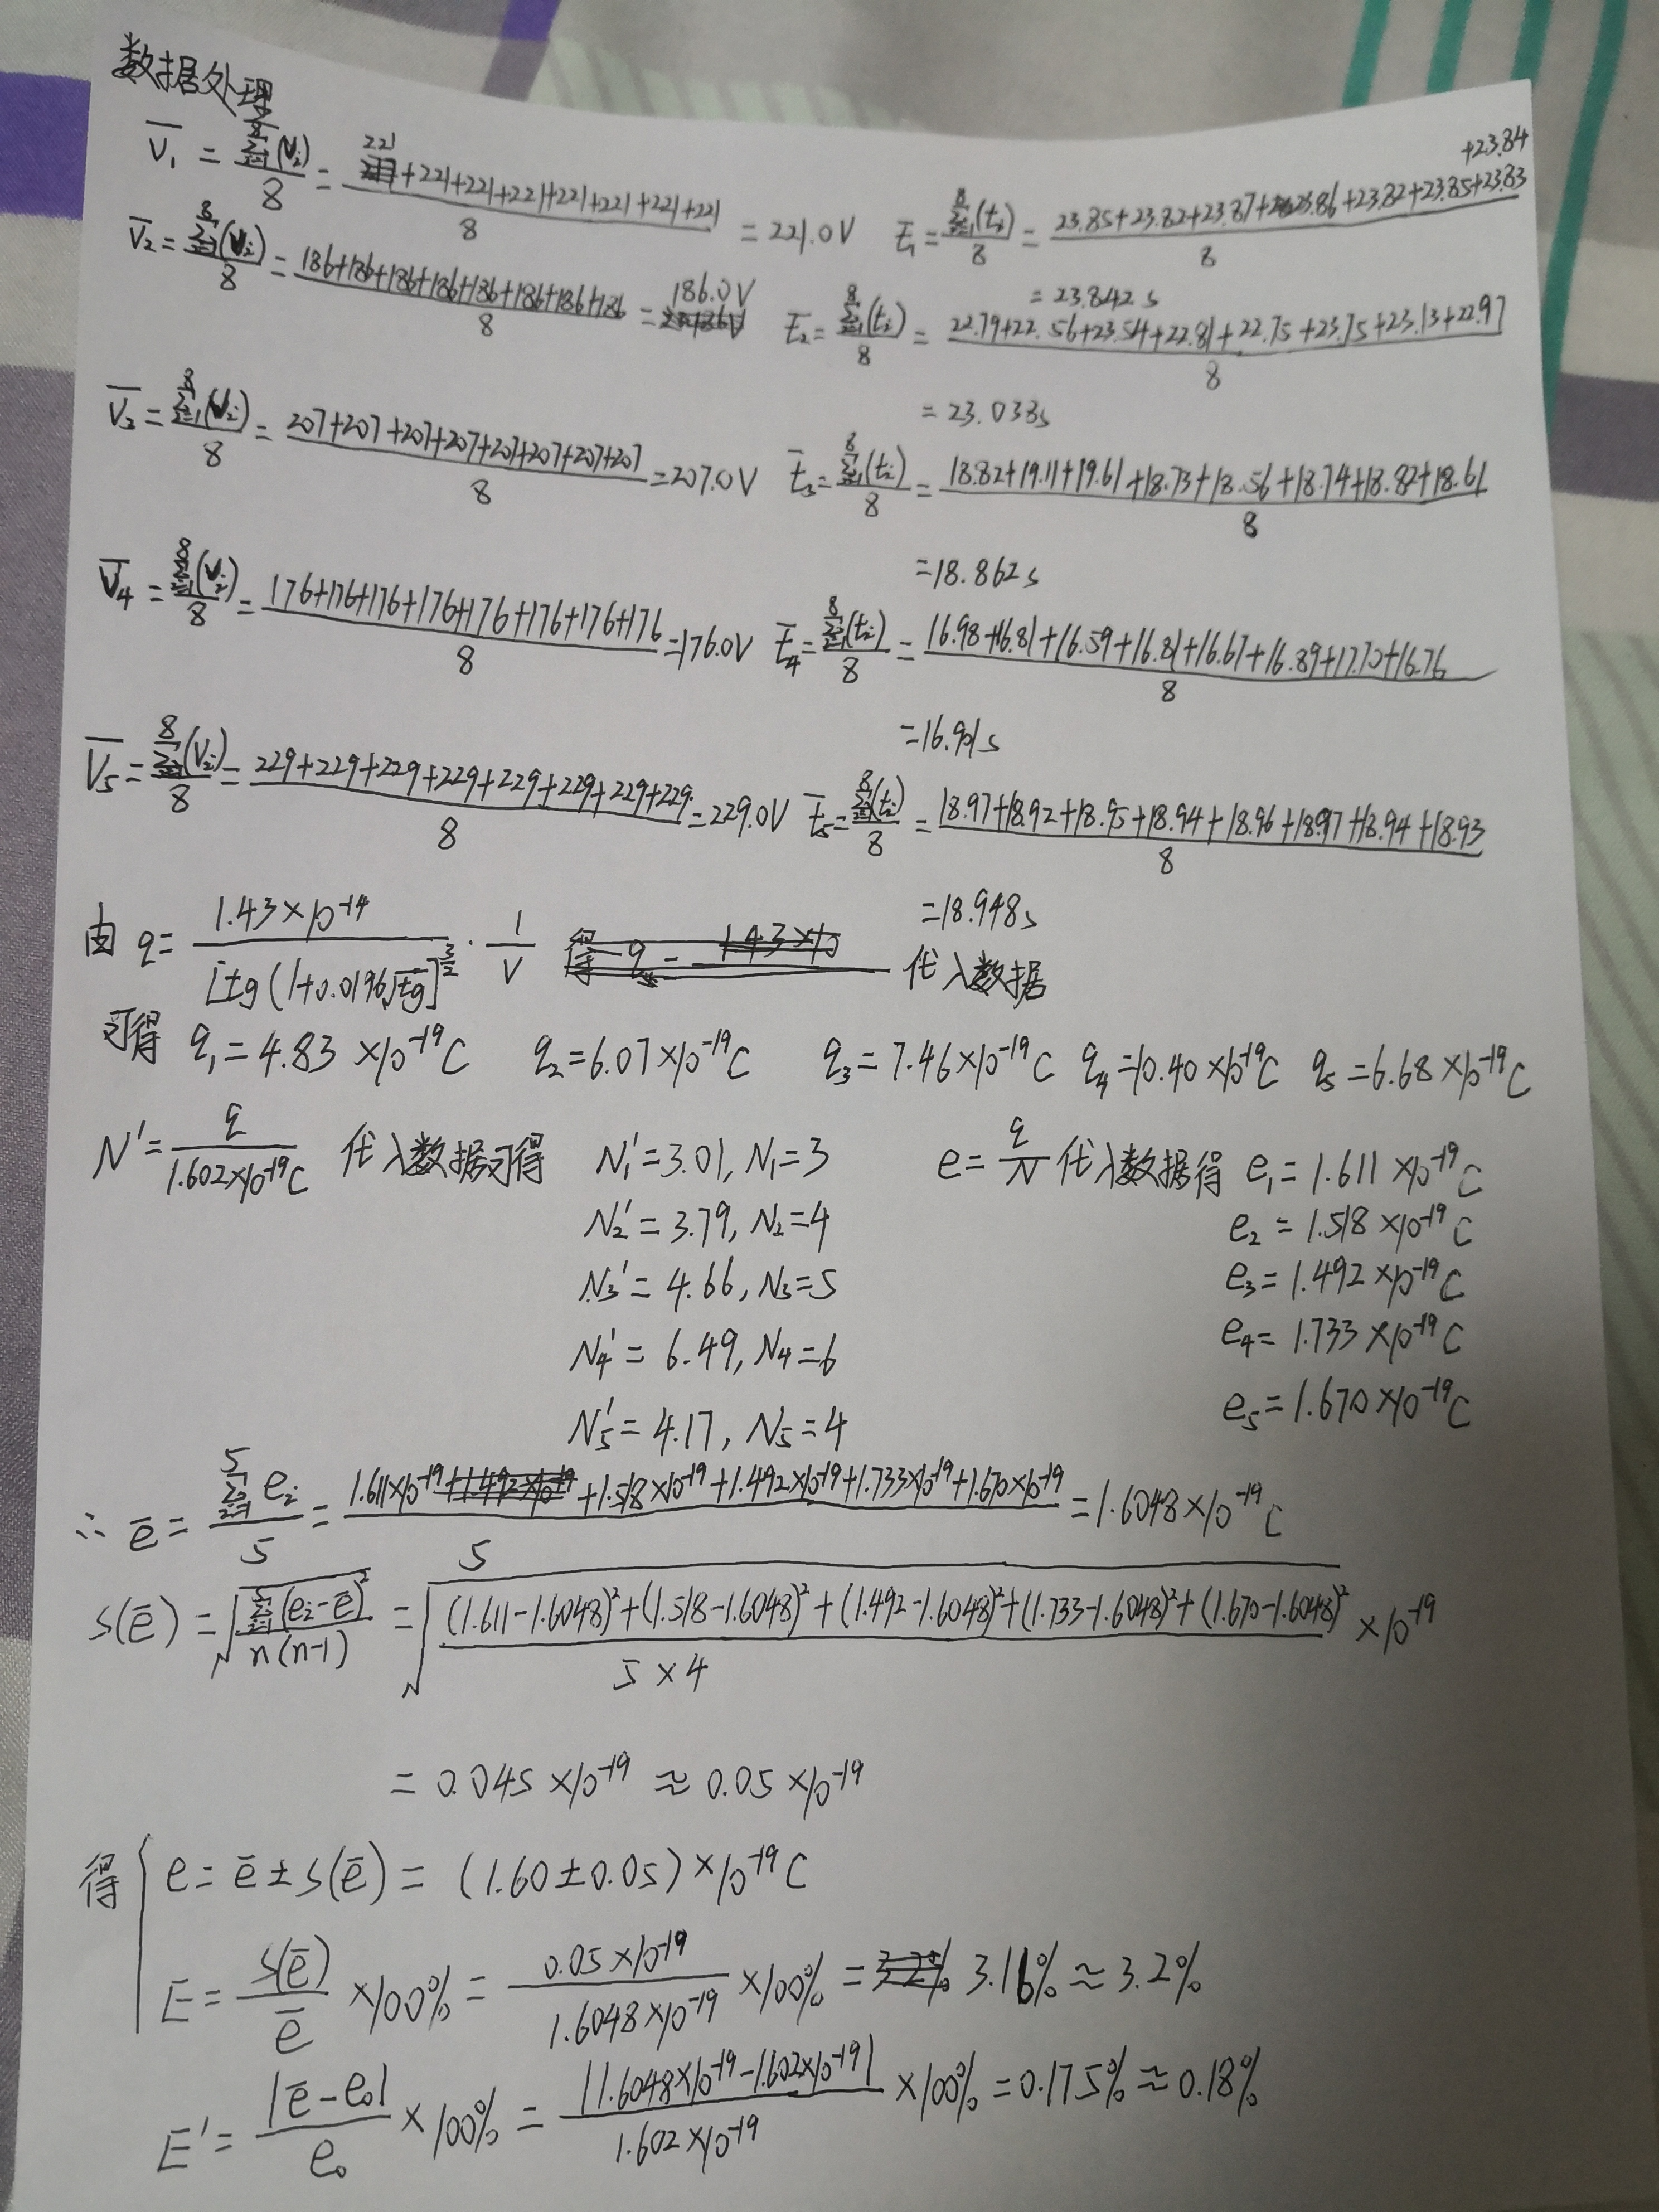 数据处理
V̄₁ = Σ(Vᵢ)/8 = (221+221+221+221+221+221+221+221)/8 = 221.0V
t̄₁ = Σ(tᵢ)/8 = (23.85+23.82+23.87+23.86+23.82+23.85+23.83+23.84)/8 = 23.842s
V̄₂ = Σ(Vᵢ)/8 = (186+186+186+186+186+186+186+186)/8 = 186.0V
t̄₂ = Σ(tᵢ)/8 = (22.79+22.56+23.54+22.81+22.75+23.75+23.13+22.97)/8 = 23.038s
V̄₃ = Σ(Vᵢ)/8 = (207+207+207+207+207+207+207+207)/8 = 207.0V
t̄₃ = Σ(tᵢ)/8 = (18.82+19.11+19.61+18.73+18.56+18.74+18.82+18.61)/8 = 18.862s
V̄₄ = Σ(Vᵢ)/8 = (176+176+176+176+176+176+176+176)/8 = 176.0V
t̄₄ = Σ(tᵢ)/8 = (16.98+16.81+16.59+16.81+16.67+16.89+17.70+16.76)/8 = 16.901s
V̄₅ = Σ(Vᵢ)/8 = (229+229+229+229+229+229+229+229)/8 = 229.0V
t̄₅ = Σ(tᵢ)/8 = (18.97+18.92+18.95+18.94+18.96+18.97+18.94+18.93)/8 = 18.948s
由 q = 1.43×10⁻¹⁴/[tg(1+0.0196√tg]^(3/2) · 1/V 代入数据
可得 q₁=4.83×10⁻¹⁹C q₂=6.07×10⁻¹⁹C q₃=7.46×10⁻¹⁹C q₄=10.40×10⁻¹⁹C q₅=6.68×10⁻¹⁹C
N'=q/1.602×10⁻¹⁹C 代入数据可得 N₁'=3.01, N₁=3 e=q/N 代入数据得 e₁=1.611×10⁻¹⁹C
N₂'=3.79, N₂=4 e₂=1.518×10⁻¹⁹C
N₃'=4.66, N₃=5 e₃=1.492×10⁻¹⁹C
N₄'=6.49, N₄=6 e₄=1.733×10⁻¹⁹C
N₅'=4.17, N₅=4 e₅=1.670×10⁻¹⁹C
∴ ē = Σeᵢ/5 = (1.611×10⁻¹⁹+1.518×10⁻¹⁹+1.492×10⁻¹⁹+1.733×10⁻¹⁹+1.670×10⁻¹⁹)/5 = 1.6048×10⁻¹⁹C
S(ē) = √(Σ(eᵢ-ē)²/n(n-1)) = √(((1.611-1.6048)²+(1.518-1.6048)²+(1.492-1.6048)²+(1.733-1.6048)²+(1.670-1.6048)²)/5×4) ×10⁻¹⁹
= 0.045×10⁻¹⁹ ≈ 0.05×10⁻¹⁹
得 e=ē±S(ē)=(1.60±0.05)×10⁻¹⁹C
E = S(ē)/ē ×100% = 0.05×10⁻¹⁹/1.6048×10⁻¹⁹ ×100% = 3.16% ≈ 3.2%
E' = |ē-e₀|/e₀ ×100% = |1.6048×10⁻¹⁹-1.602×10⁻¹⁹|/1.602×10⁻¹⁹ ×100% = 0.175% ≈ 0.18%